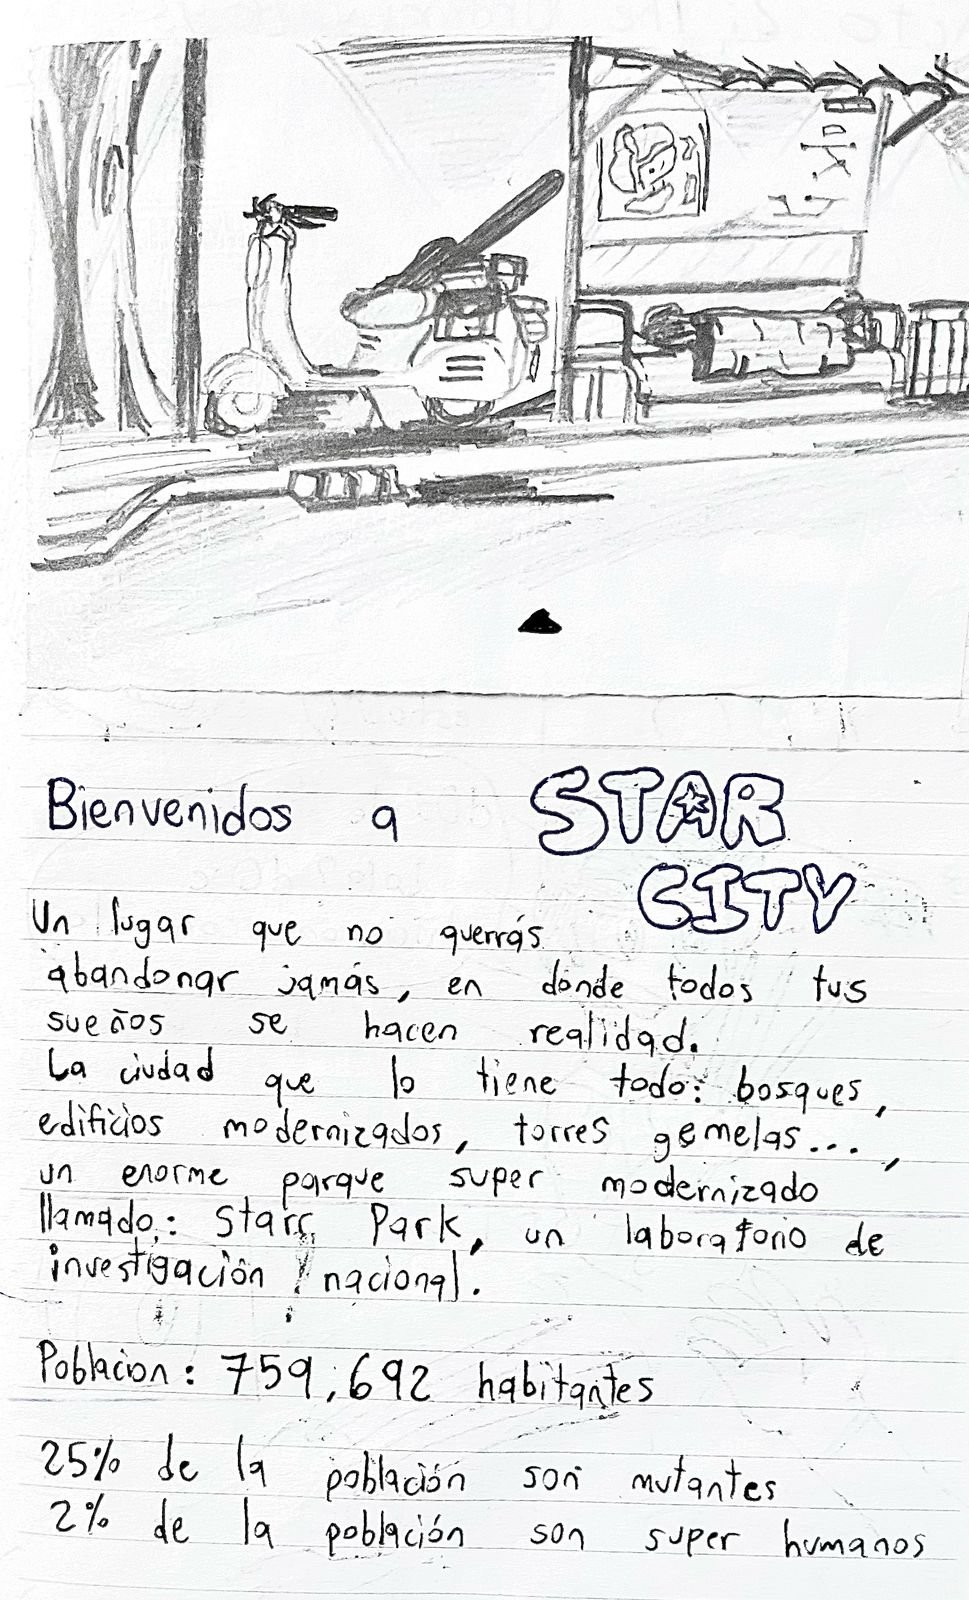 Bienvenidos a STAR
CITY
Un lugar que no querrás
abandonar jamás, en donde todos tus
sueños se hacen realidad.
La ciudad que lo tiene todo: bosques,
edificios modernizados, torres gemelas...,
un enorme parque super modernizado
llamado: Starr Park, un laboratorio de
investigación nacional.
Poblacion: 759,692 habitantes
25% de la población son mutantes
2% de la población son super humanos